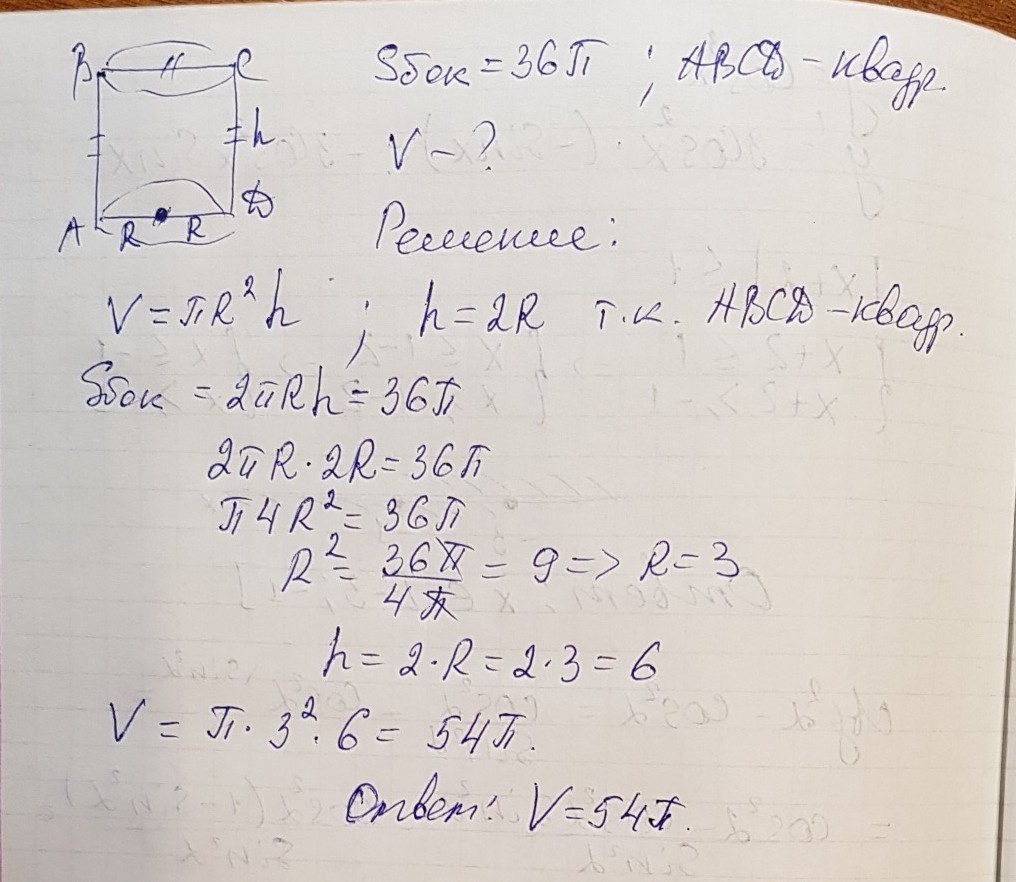 B C Sбок = 36π ; ABCD – квадр.
h
V – ?
A R R D
Решение:
V = πR² h ; h = 2R т.к. ABCD – квадр.
Sбок = 2πRh = 36π
2πR · 2R = 36π
π4R² = 36π
R² = 36π/4π = 9 => R = 3
h = 2 · R = 2 · 3 = 6
V = π · 3² · 6 = 54π.
Ответ: V = 54π.